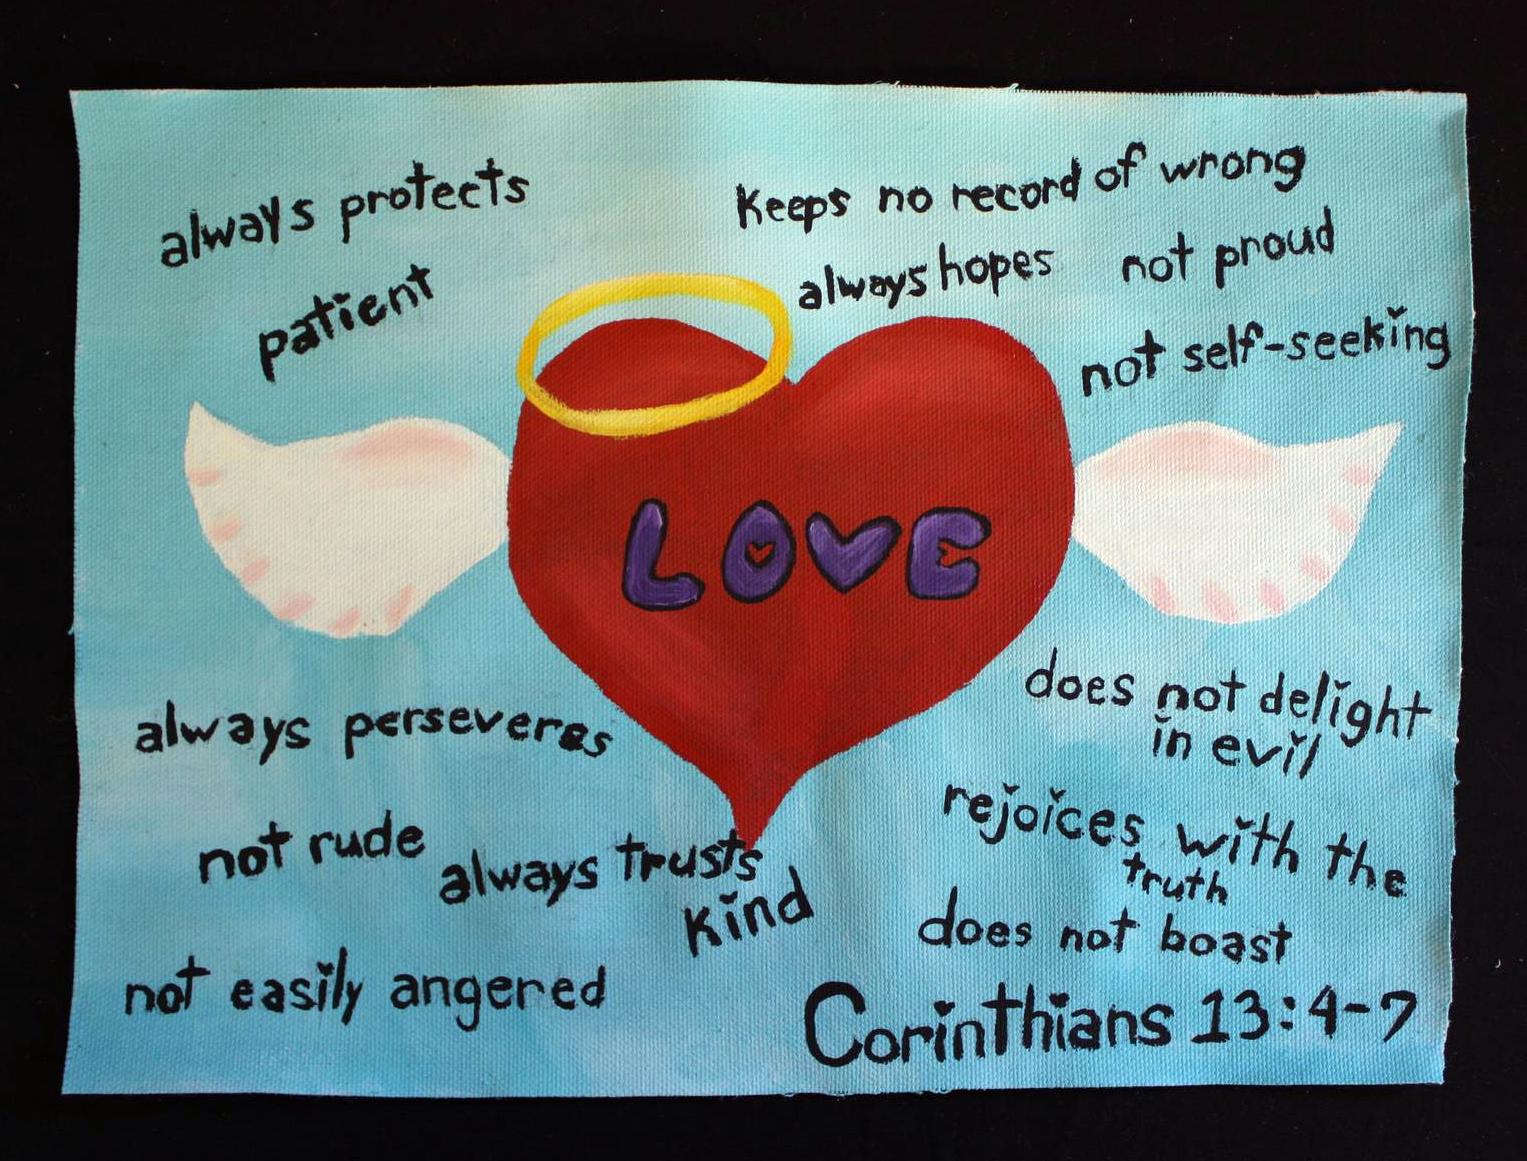 always protects
patient
Keeps no record of wrong
always hopes
not proud
not self-seeking
LOVE
always perseveres
not rude
always trusts
kind
not easily angered
does not delight
in evil
rejoices with the
truth
does not boast
Corinthians 13:4-7